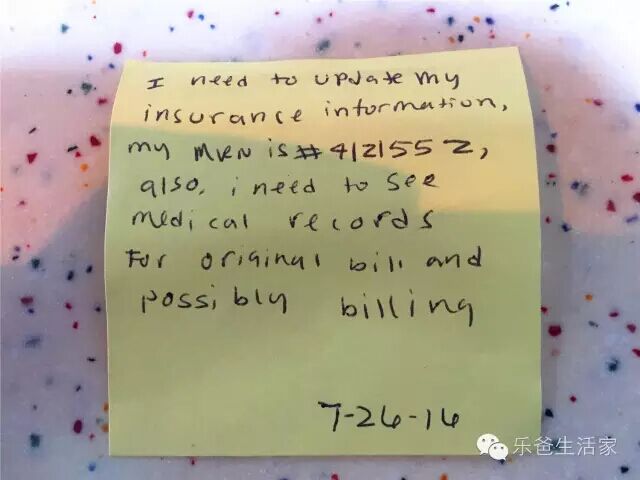 I need to update my
insurance information,
my MRN is # 4121552,
also, i need to see
medical records
For original bill and
possibly billing
7-26-16
乐爸生活家